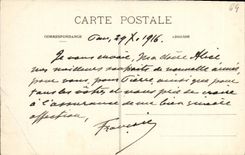 64
CARTE POSTALE
CORRESPONDANCE ADRESSE
Pau, 29 X. 1916.
Je vous envoie, ma chère Alice
mes meilleurs souhaits de nouvelle année
pour vous, pour Pierre ainsi que pour
tous les vôtres et vous prie de croire
à l'assurance de ma bien sincère
affection,
François